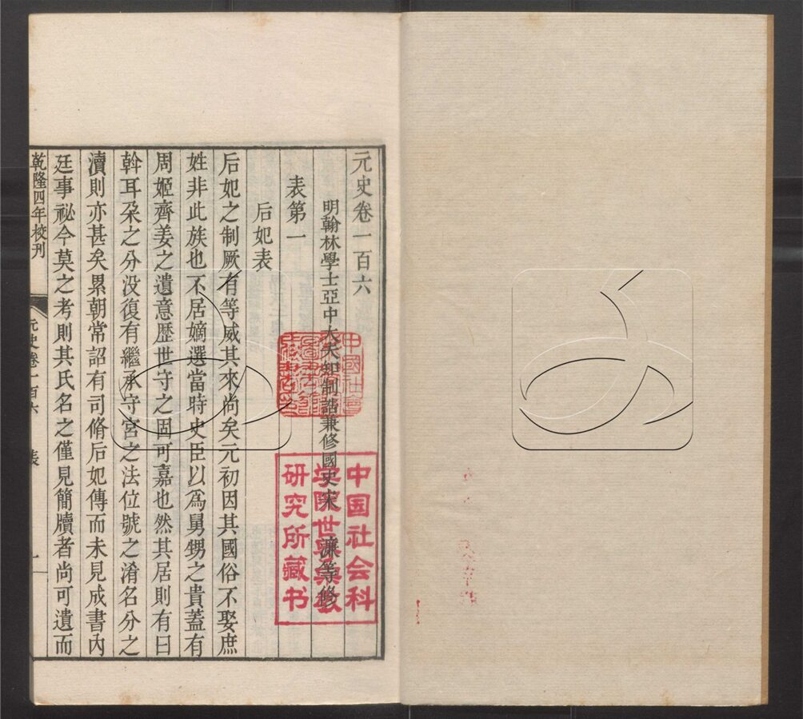 元史卷一百六
明翰林學士亞中大夫知制誥兼修國史宋濂等修
表第一
后妃表
后妃之制厥有等威其來尚矣元初因其國俗不娶庶
姓非此族也不居嫡選當時史臣以爲舅甥之貴蓋有
周姬齊姜之遺意歷世守之固可嘉也然其居則有曰
斡耳朶之分没復有繼承守宮之法位號之淆名分之
瀆則亦甚矣累朝常詔有司脩后妃傳而未見成書內
廷事祕今莫之考則其氏名之僅見簡牘者尚可遺而
乾隆四年校刊
元史卷一百六 表 一
中国社会科
学院世界宗教
研究所藏书